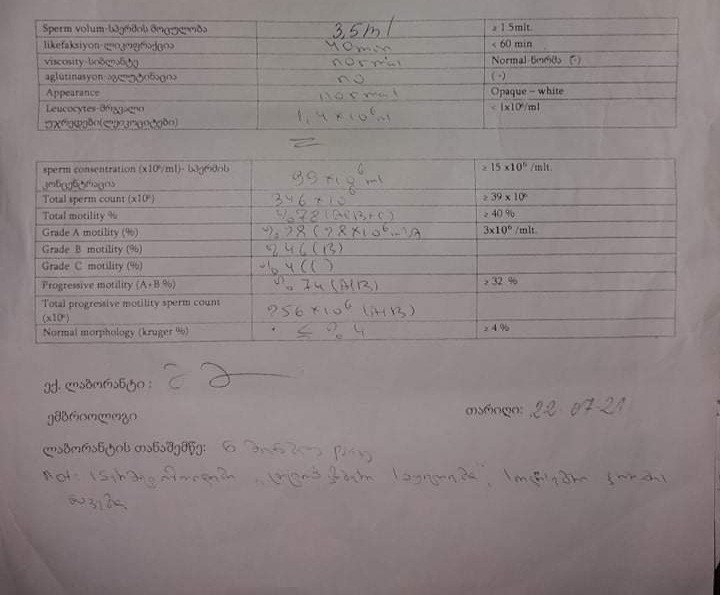 Sperm volum-სპერმის მოცულობა 3,5ml ≥ 1 5mlt.
likefaksiyon-ლიკოფრაქცია 40min < 60 min
viscosity-სიბლანტე normal Normal-ნორმა (-)
aglutinasyon-აგლუტინაცია no (-)
Appearance normal Opaque – white
Leucocytes-მრგვალი უჯრედები(ლეიკოციტები) 1,4×10⁶ml < 1x10⁶/ml
sperm consentration (x10⁶/ml)- სპერმის კონცენტრაცია 99×10⁶ml ≥ 15 x10⁶ /mlt.
Total sperm count (x10⁶) 346×10⁶ ≥ 39 x 10⁶
Total motility % %78 (A(B+C) ≥ 40 %
Grade A motility (%) %28 (28×10⁶ml)A 3x10⁶ /mlt.
Grade B motility (%) %46 (B)
Grade C motility (%) %4 (C)
Progressive motility (A+B %) %74 (A(B) ≥ 32 %
Total progressive motility sperm count (x10⁶) 256×10⁶ (A+B)
Normal morphology (kruger %) ≤ % 4 ≥ 4 %
ექ. ლაბორანტი :
ემბრიოლოგი თარიღი: 22 07-21
ლაბორანტის თანაშემწე: